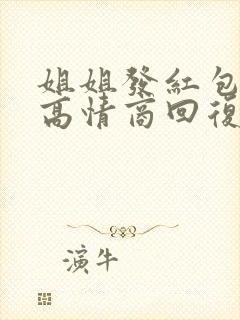 姐姐發紅包
高情商回復
演牛